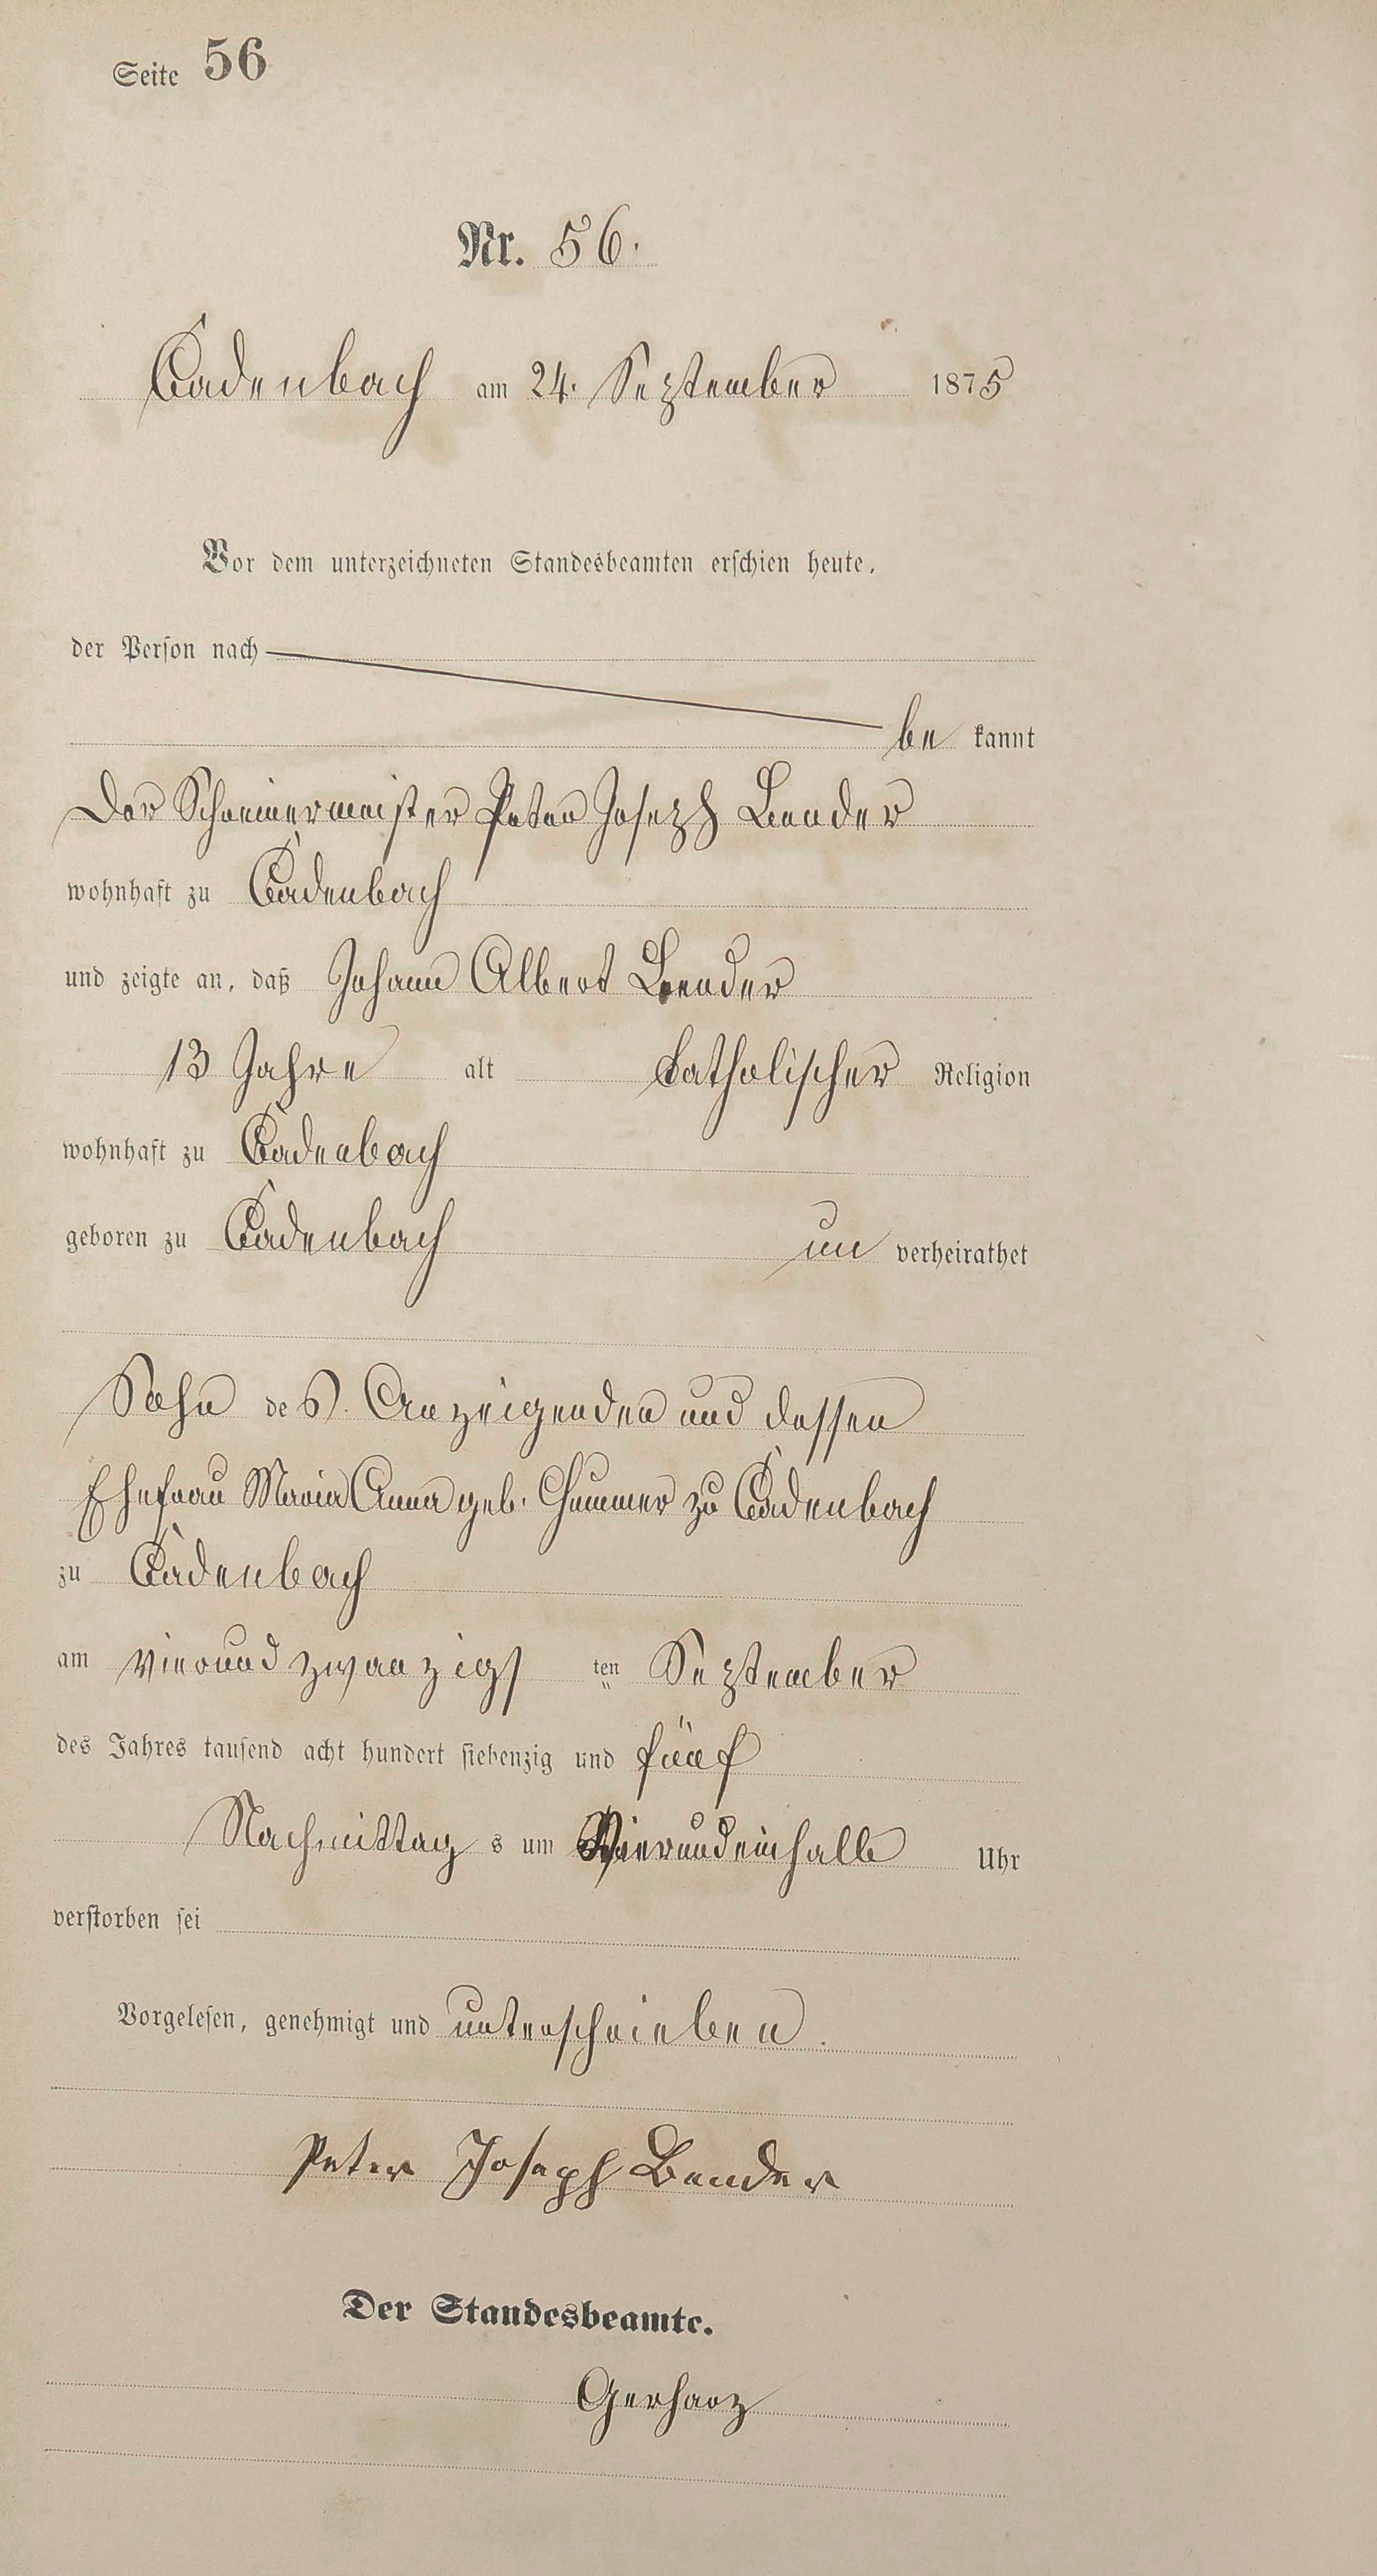 Seite 56
Nr. 56.
Cadenbach am 24. September 1875
Vor dem unterzeichneten Standesbeamten erschien heute,
der Person nach
be kannt
Der Schreinermeister Peter Joseph Bender
wohnhaft zu Cadenbach
und zeigte an, daß Johann Albert Bender
13 Jahre alt Catholischer Religion
wohnhaft zu Cadenbach
geboren zu Cadenbach un verheirathet
Sohn des Anzeigenden und dessen
Ehefrau Maria Anna geb. zu Cadenbach
zu Cadenbach
am vierund zwanzigs ten September
des Jahres tausend acht hundert siebenzig und fünf
Nachmittag s um Vierundeinhalb Uhr
verstorben sei
Vorgelesen, genehmigt und unterschrieben.
Peter Joseph Bender
Der Standesbeamte.
Gerharz